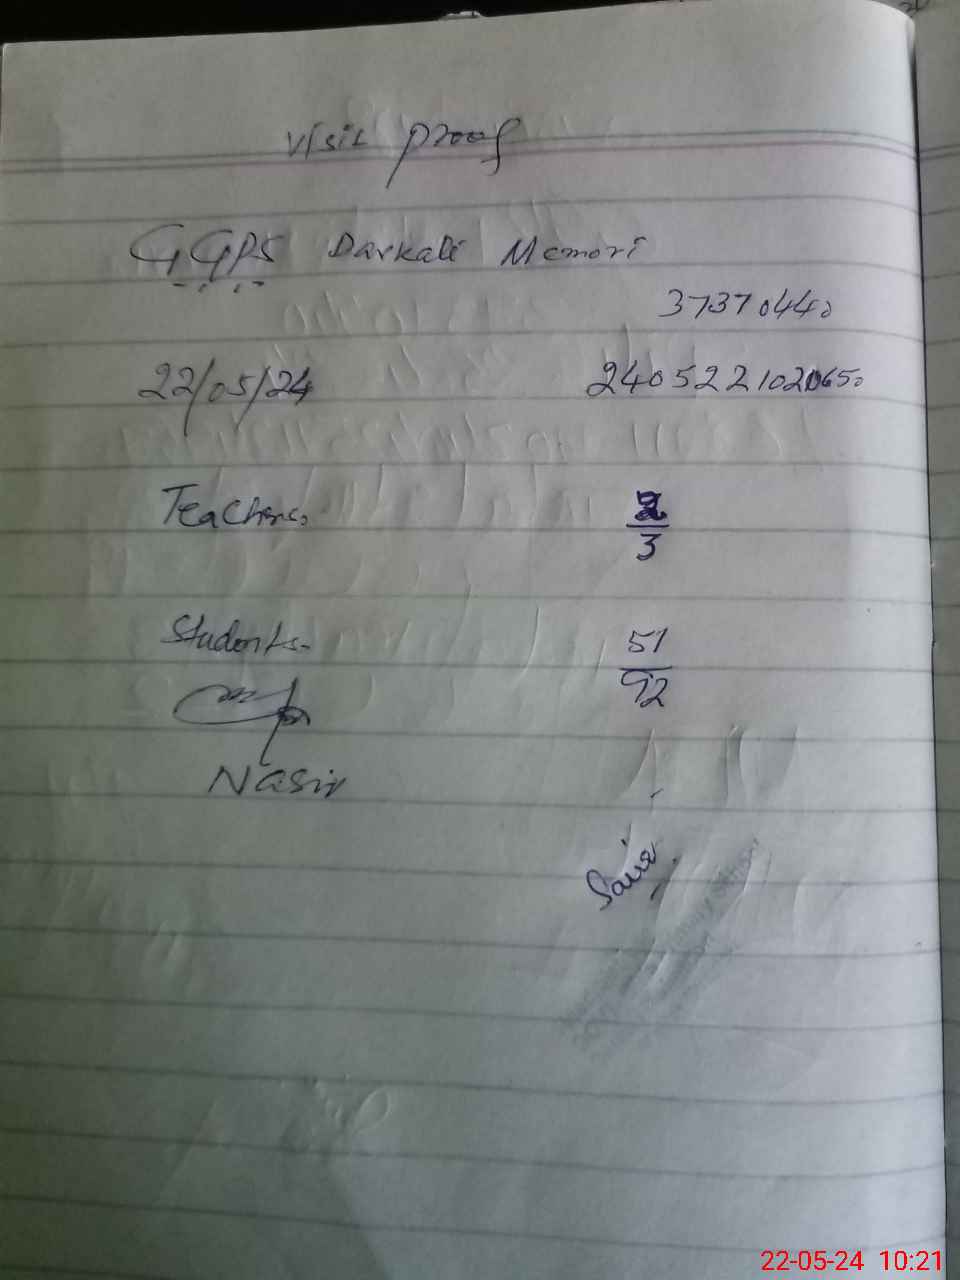 visit proof
GGPS Darkali Memori
37370440
22/05/24 240522102065
Teachers
3
Students 51
92
Nasir
22-05-24 10:21